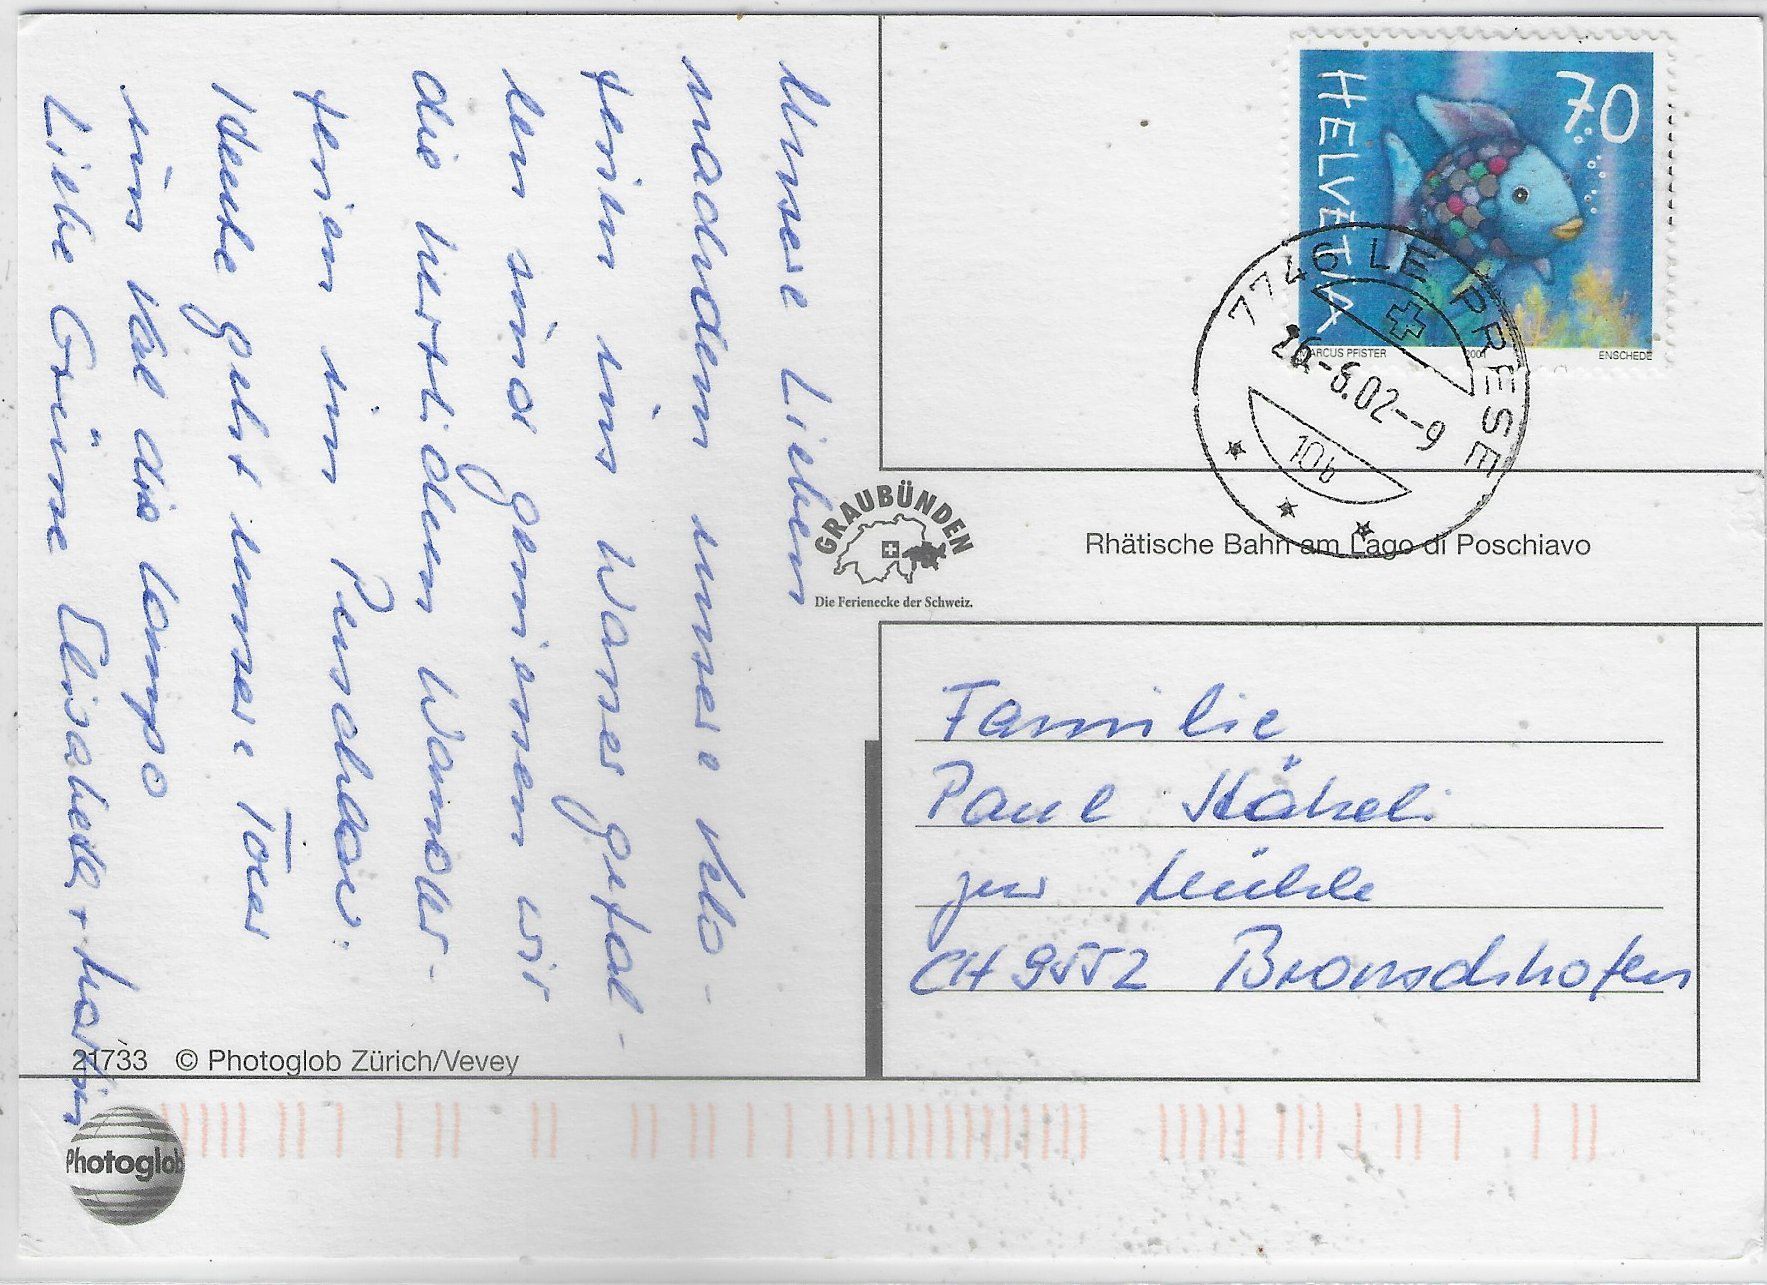 Unsere Lieben
nachdem unsere Velo-
ferien ins Wasser gefal-
len sind geniessen wir
die herrlichen Wander-
ferien im Puschlav.
Heute geht unsere Tour
ins Val da Campo
Liebe Grüsse Elisabeth + Martin
HELVETIA
70
MARCUS PFISTER 2001 ENSCHEDE
7746 LE PRESE
26.-8.02--9
10b
GRAUBÜNDEN
Die Ferienecke der Schweiz.
Rhätische Bahn am Lago di Poschiavo
Familie
Paul
zur Mühle
CH 9552 Bronschhofen
21733 © Photoglob Zürich/Vevey
Photoglob